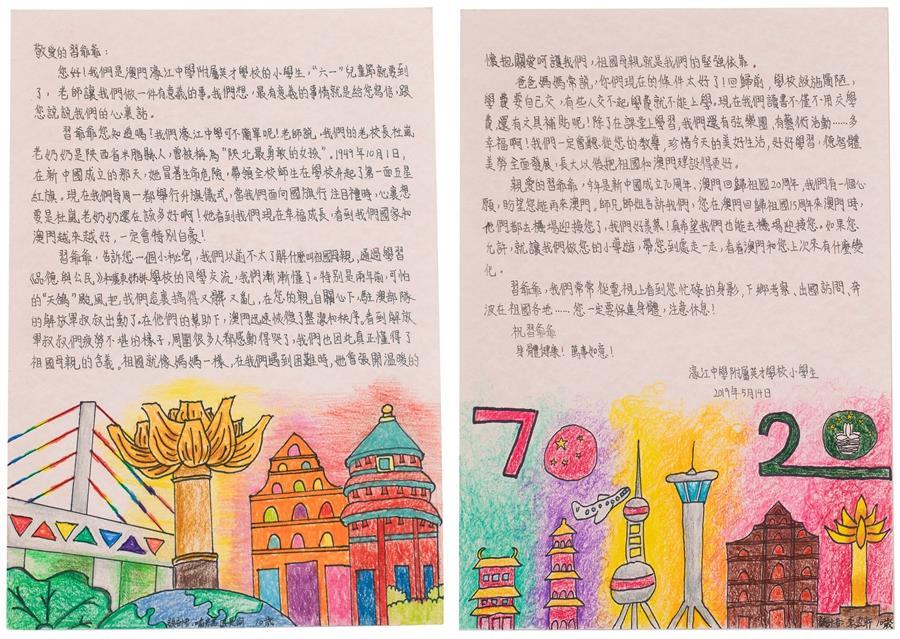 敬愛的習爺爺：
您好！我們是澳門濠江中學附屬英才學校的小學生，“六一”兒童節就要到
了，老師讓我們做一件有意義的事。我們想，最有意義的事情就是給您寫信，跟
您說說我們的心裏話。
習爺爺您知道嗎！我們濠江中學可不簡單呢！老師說，我們的老校長杜嵐
老奶奶是陝西省米脂縣人，曾被稱為“陝北最勇敢的女孩”。1949年10月1日，
在新中國成立的那天，她冒著生命危險，帶領全校師生在學校升起了第一面五星
紅旗。現在我們每周一都舉行升旗儀式，當我們面向國旗行注目禮時，心裏想
要是杜嵐老奶奶還在該多好啊！她看到我們現在幸福成長，看到我們國家和
澳門越來越好，一定會特別自豪！
習爺爺，告訴您一個小秘密，我們以前不太了解什麼叫祖國母親，通過學習
《品德與公民》學校的同學交流，我們漸漸懂了。特別是兩年前，可怕
的“天鴿”颱風把我們這裏搞得又髒又亂，在您的親自關心下，駐澳部隊
的解放軍叔叔出動了。在他們的幫助下，澳門迅速恢復了整潔和秩序。看到解放
軍叔叔們疲勞不堪的樣子，周圍很多人都感動得哭了，我們也因此真正懂得了
祖國母親的含義。祖國就像媽媽一樣，在我們遇到困難時，她會張開溫暖的
懷抱，關愛呵護我們，祖國母親就是我們的堅強依靠。
爸爸媽媽常說，你們現在的條件太好了！回歸前，學校設施簡陋，
學費要自己交，有些人交不起學費就不能上學。現在我們讀書不僅不用交學
費，還有文具補貼呢！除了在課堂上學習，我們還有弦樂團，有藝術活動……多
幸福啊！我們一定會聽從您的教導，珍惜今天的美好生活，好好學習，德智體
美勞全面發展，長大以後把祖國和澳門建設得更好。
親愛的習爺爺，今年是新中國成立70周年，澳門回歸祖國20周年，我們有一個心
願，盼望您能再來澳門。師兄師姐告訴我們，您在澳門回歸祖國15周年來澳門時，
他們都去機場迎接您了，我們好羨慕！真希望我們也能去機場迎接您。如果您
允許，就讓我們做您的小導遊，帶您到處走一走，看看澳門和您上次來有什麼變
化。
習爺爺，我們常常從電視上看到您忙碌的身影，下鄉考察、出國訪問、奔
波在祖國各地……您一定要保重身體，注意休息！
祝習爺爺
身體健康！萬事如意！
濠江中學附屬英才學校小學生
2019年5月14日
70 20
10歲
10歲